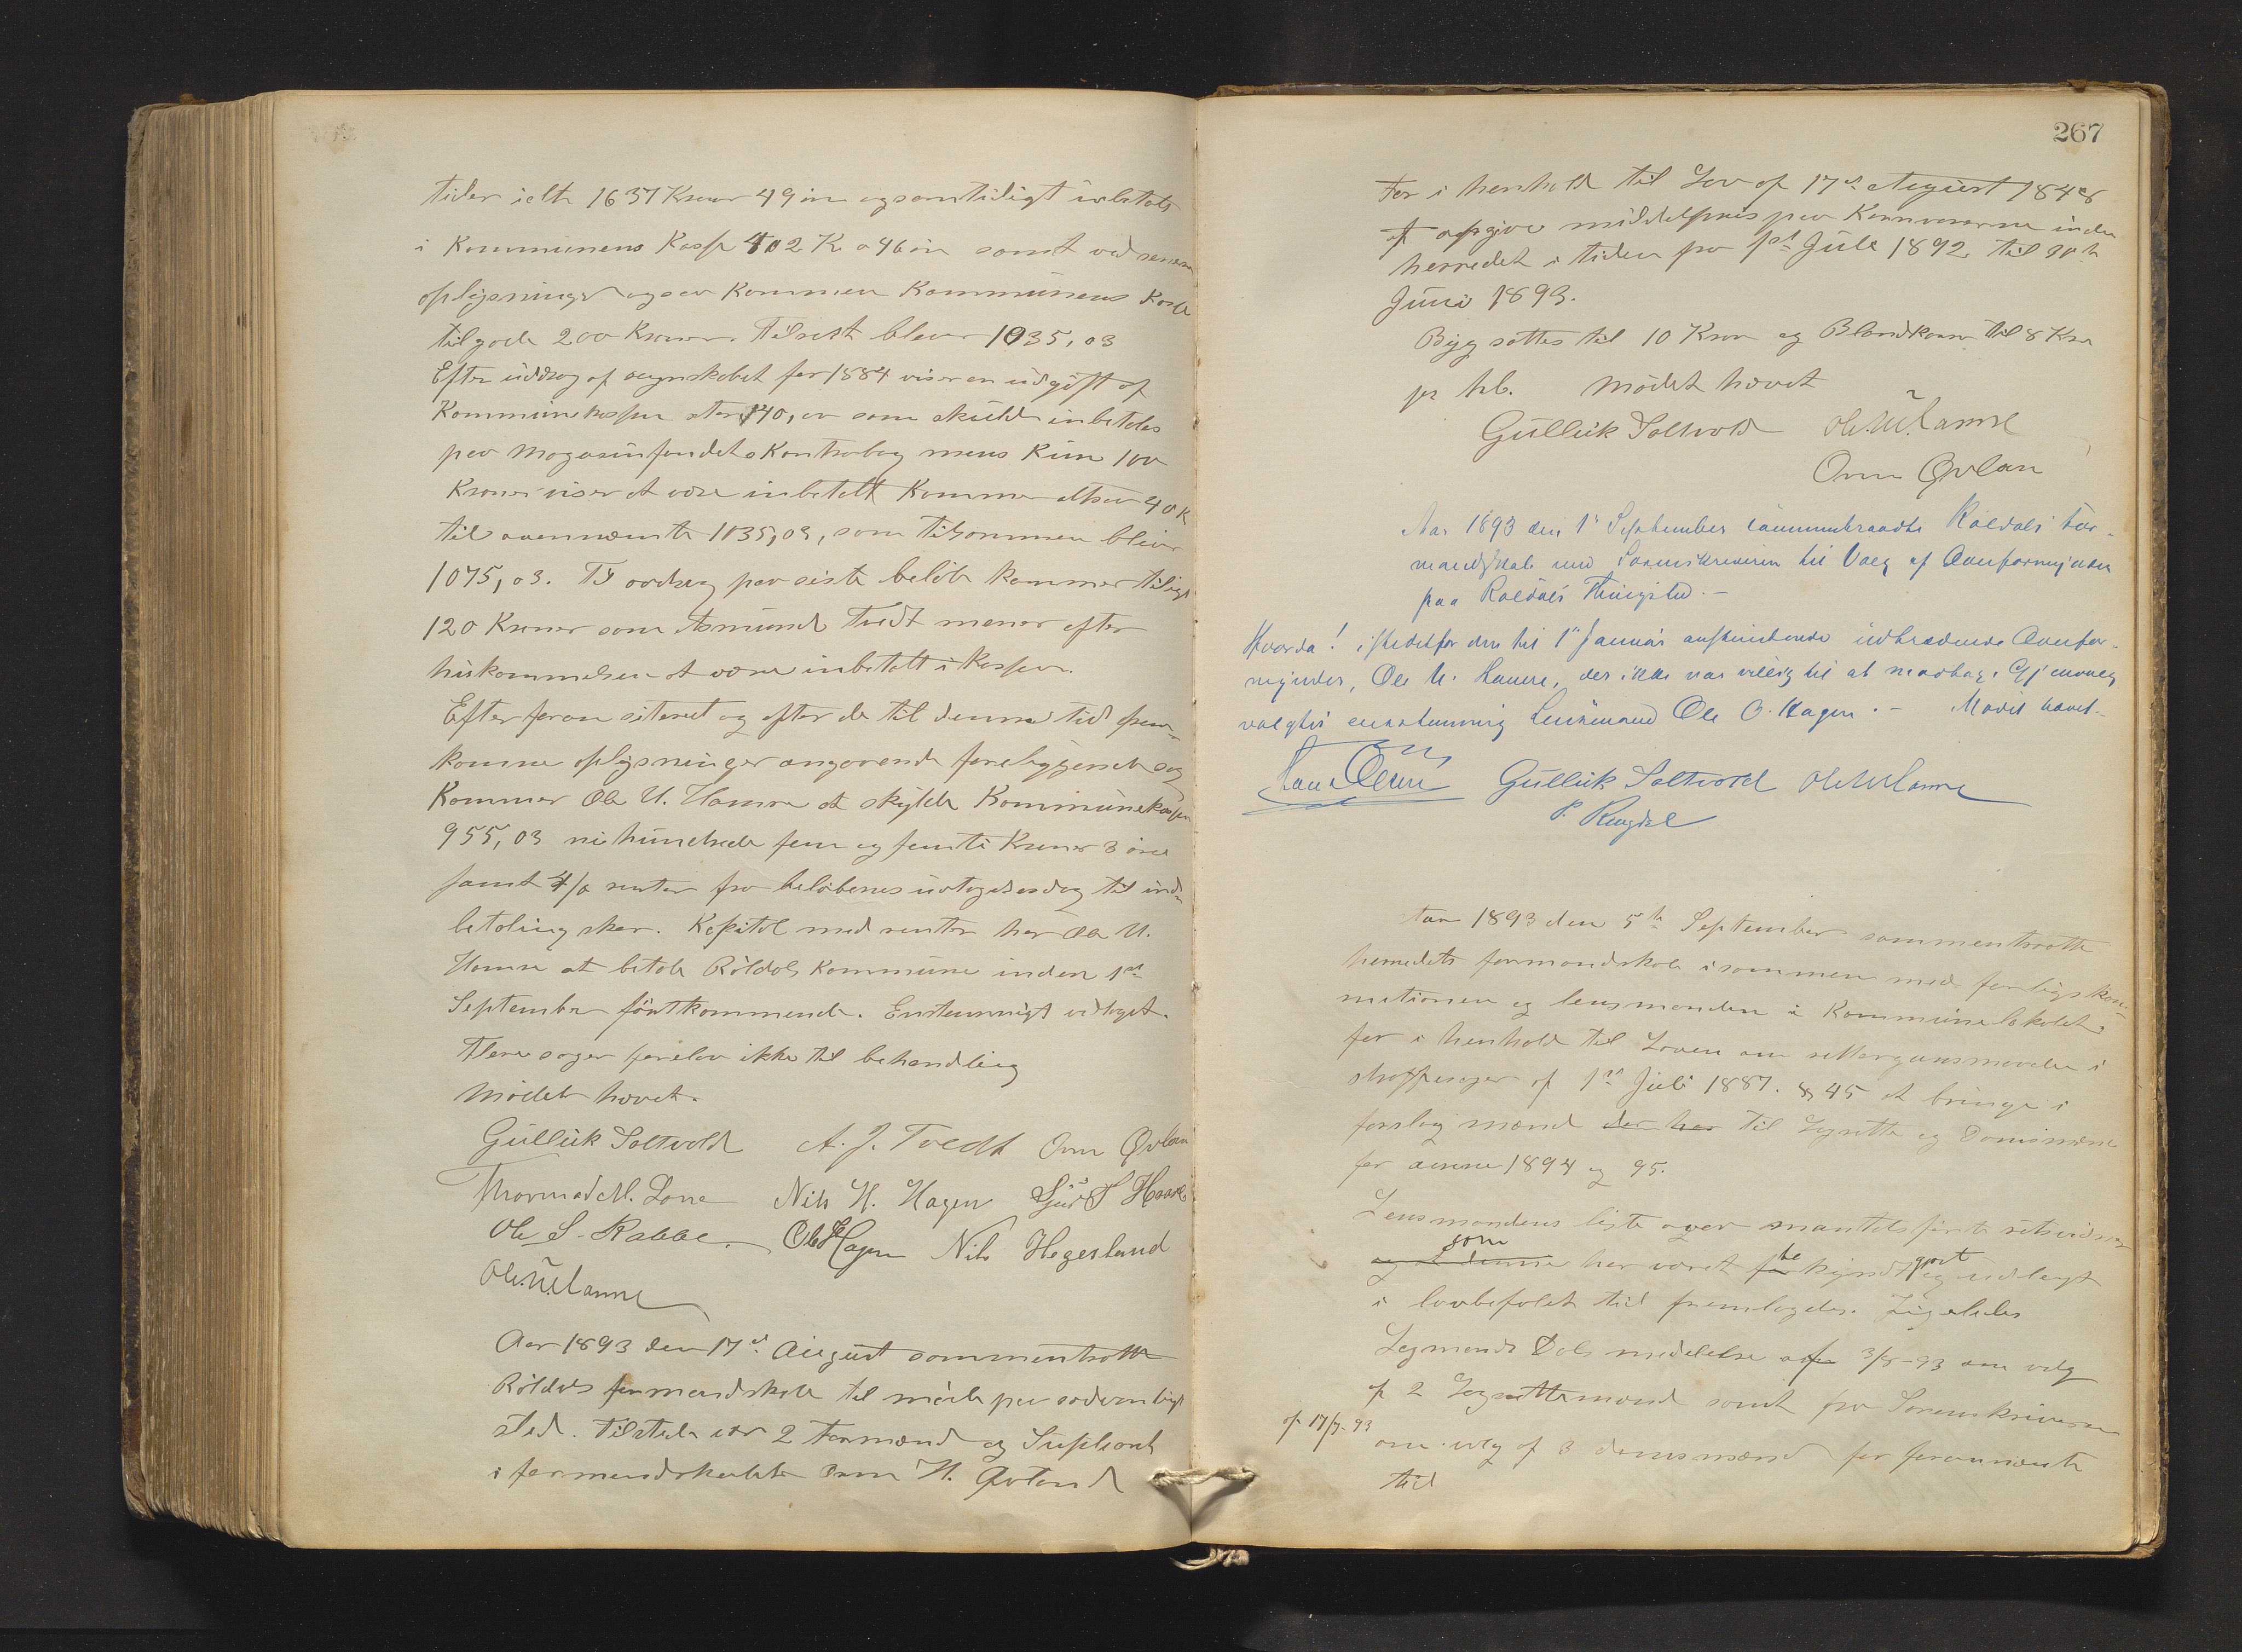 tider ialt 1637 Kroner 49 öre og samtidigt inbetalt
i Kommunens Kasse 402 K a 46 öre samt ved senere
oplysninger ogsaa Kommen Kommunens Kasse
tilgode 200 Kroner. Tilrest bliver 1035,03
Efter uddrag af regnskabet for 1884 viser en udgift af
Kommunekassen stor 140,00 som skulde inbetales
paa Magasinfondets Kontrabog mens Kun 100
Kroner viser at være inbetalt Kommer altsaa 40 K
til ovennæmte 1035,03, som tilsammen bliver
1075,03. Til avdrag paa siste beløb kommer
120 Kroner som Asmund Tvedt mener efter
huskommelsen at være inbetalt i kassen.
Efter foran siteret og efter de til denne tid frem-
komne oplysninger angaaende foreliggende sag
Kommer Ole U. Hamre at skylde Kommunekassen
955,03 ni hundrede fem og femti Kroner 3 öre
samt 4/o renter fra beløbenes uvtagelsesdag til ind-
betaling sker. Kapital med renter har Ole U.
Hamre at betale Röldals Kommune inden 1ste
September förstkommende. Enstemmigt vedtaget.
Flere sager forelaa ikke til behandling
Mödet hævet.
Gullük Saltvold A. J. Tvedt Orm Qvlan
Thormod M. Lone Nils H. Hagen Sjur S Haare
Ole S. Rabbe. Ole Hagen Nils Hegerland
Ole U. Hamre
Aar 1893 den 17de August sammentraatte
Röldals formandskab til möde paa sedvanligt
sted. Tilstede var 2 Formænd og Suppleant
i formandskabet Orm H. Qvland
267
For i henhold til Lov af 17de August 1848
at opgive middelpris paa Kornvarerne inden
herredet i tiden fra 1ste Juli 1892 til 30te
Juni 1893.
Byg sattes til 10 Kron og Blandkorn til 8 Kro
pr hl. Mödet hævet
Gullük Saltvold Ole U. Hamre
Orm Qvlan
Aar 1893 den 1ste September sammentraadte Röldals for-
mandskab med Sorenskriveren til Valg af Overformynder
paa Röldals Thingsted. -
Hvorda! istedetfor den til 1ste Januar udtrædende Overfor-
mynder, Ole U. Hamre, der ikke var villig til at modtage Gjenvalg
valgtes enstemmig Lensmand Ole O. Hagen. - Mödet hævet.
Gullük Saltvold Ole U. Hamre
P. Rengdal
Aar 1893 den 5te September sammentraatte
herredets formandskab isammen med forligskom-
missionen og lensmanden i Kommunelokalet
for i henhold til Loven om rettergangsmaaden i
straffesager af 1ste Juli 1887. § 45 at bringe i
forslag mænd der har til Lagrette og Domsmænd
for aarene 1894 og 95.
Lensmandens liste over mandtalsförte
som
og denne har været be kjendtgjort og udlagt
i lovbefalet tid fremlagdes. Ligeledes
Lagmands Dals medelelse af 3/8-93 om valg
af 2 Lagrettemænd samt fra Sorenskriveren
af 17/7-93 om valg af 3 domsmænd for forannæmte
tid